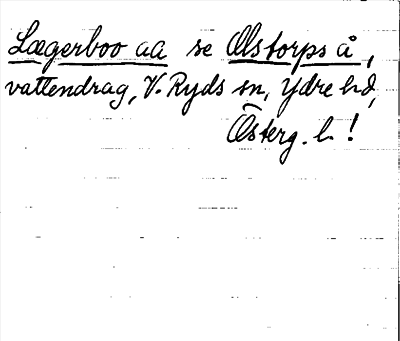 Lægerboo aa se Ølstorps å,
vattendrag, V. Ryds sn, Ydre hd,
Österg. l. !